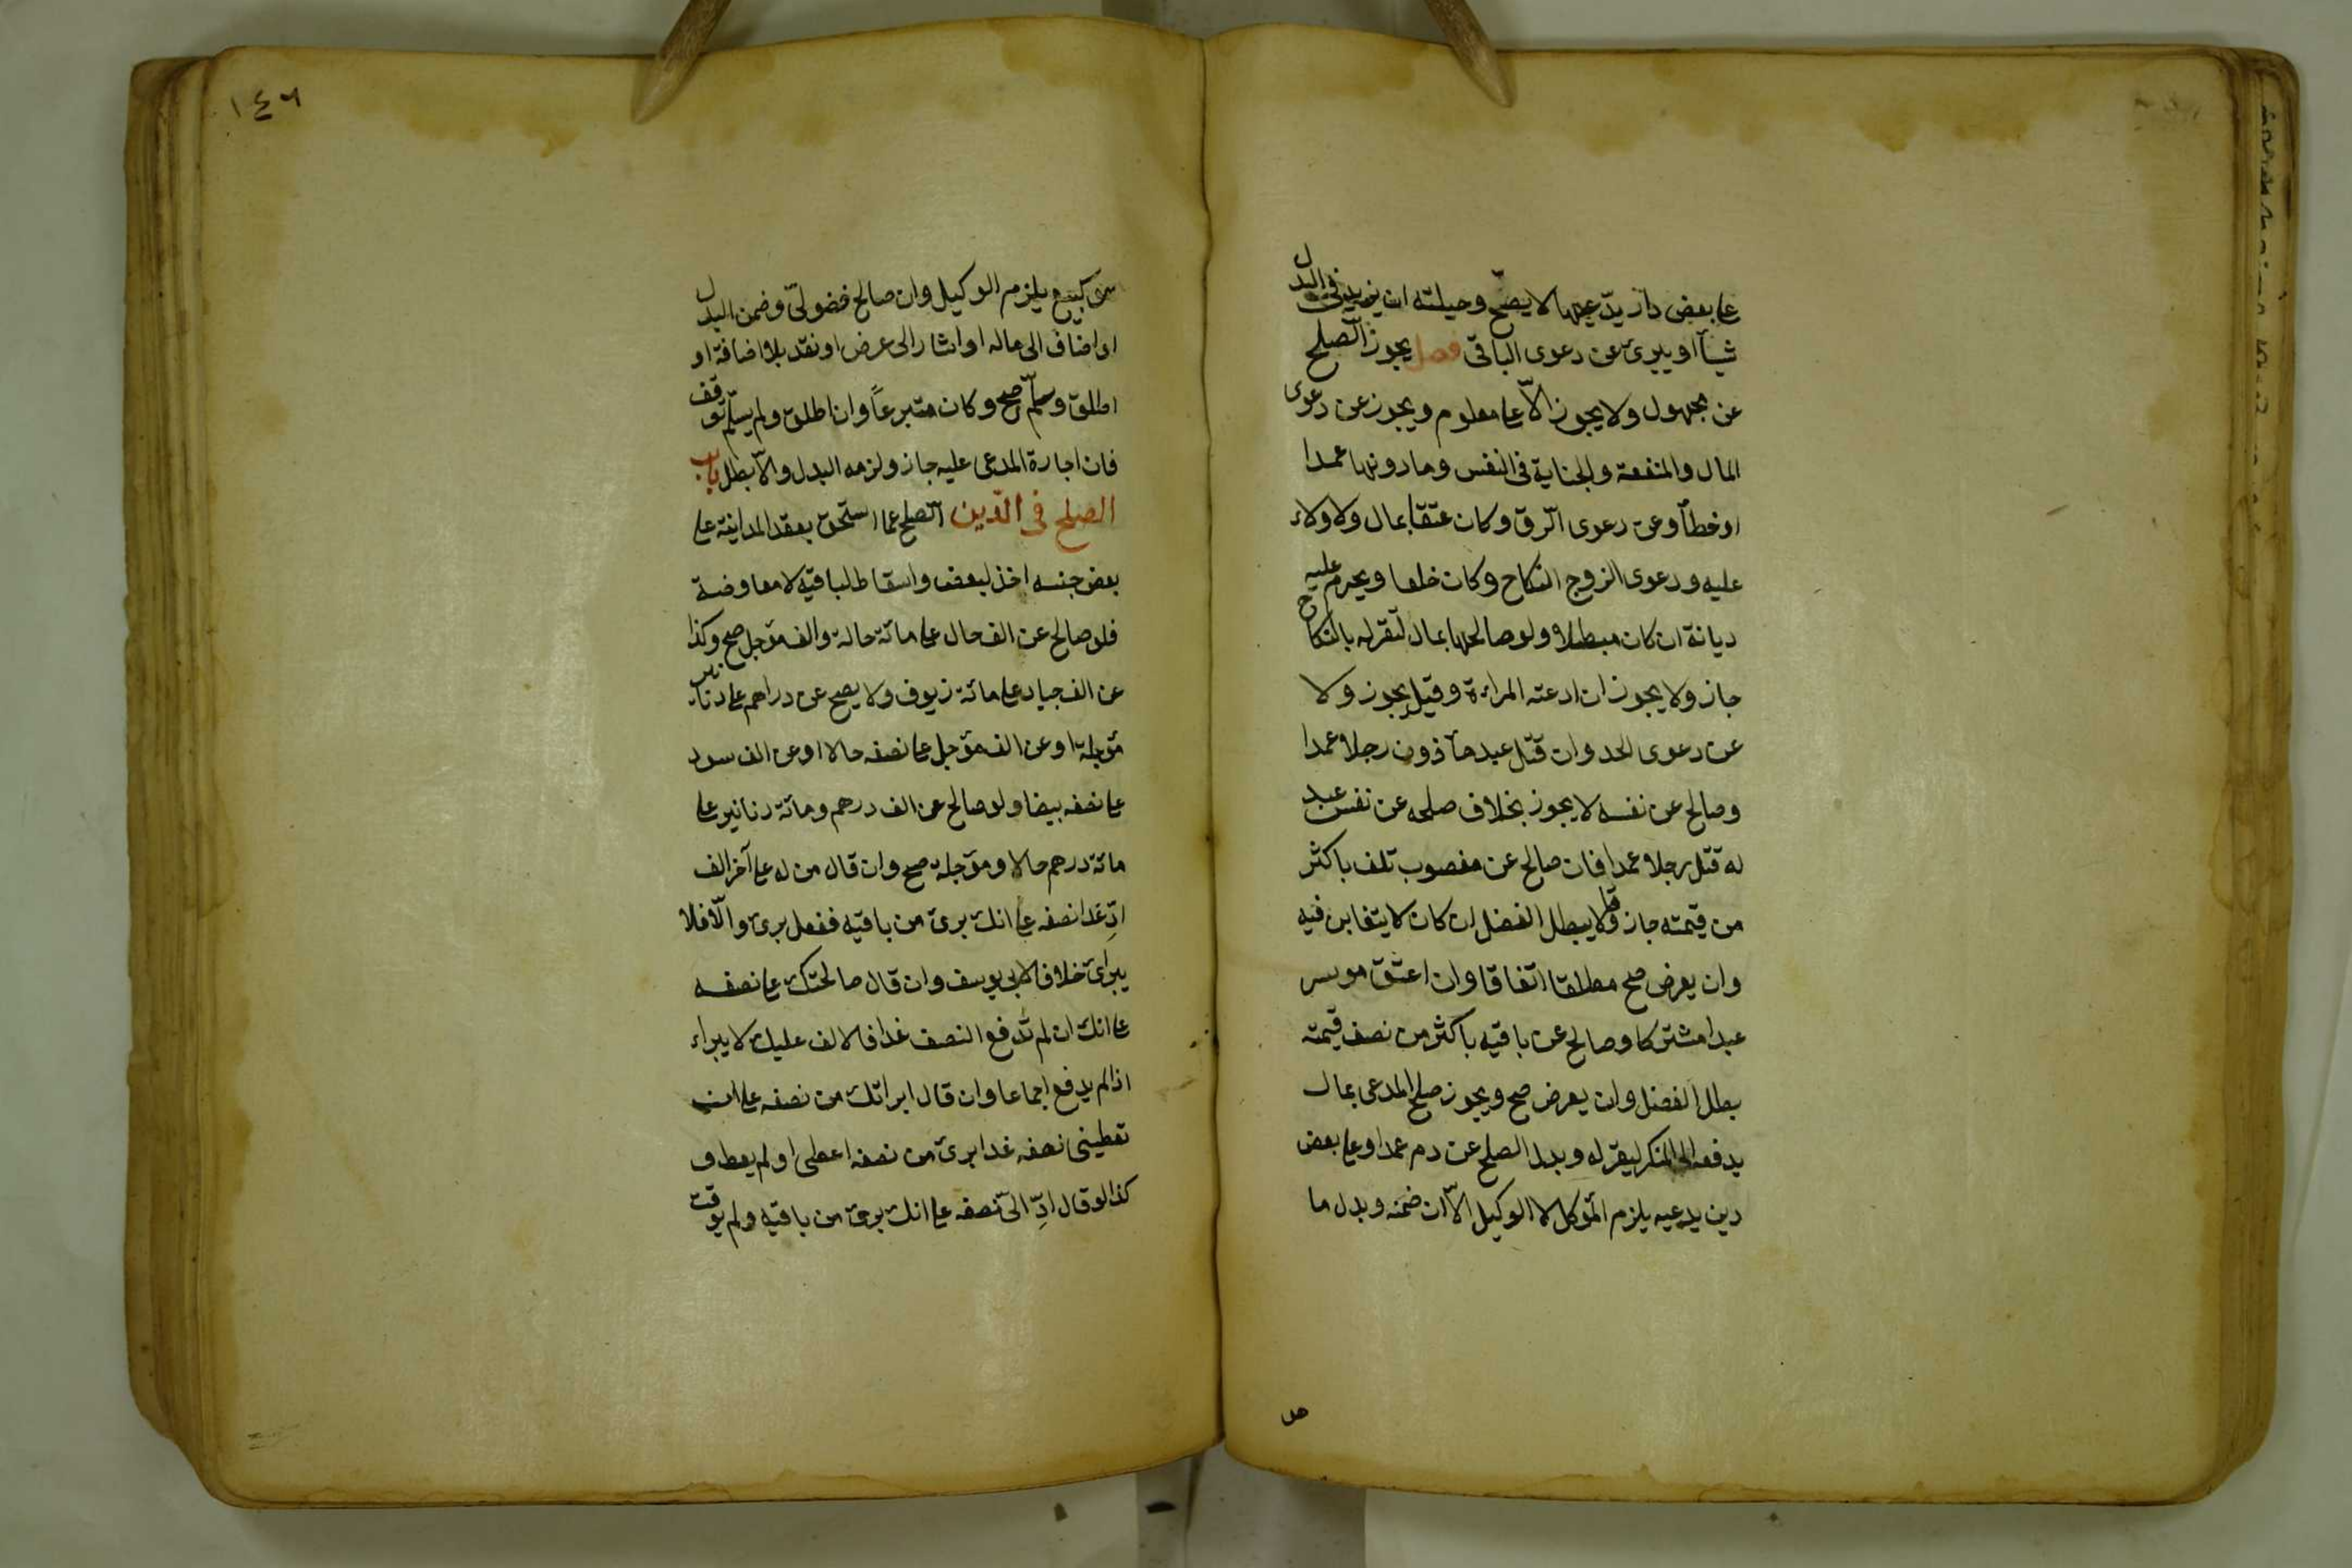 على بعض دار يدعيها لا يصح وحيلته ان يزيد فى البدل
شيأ او يبرئ عن دعوى الباقى فصل يجوز الصلح
عن مجهول ولا يجوز الّا على معلوم ويجوز عن دعوى
المال والمنفعة والجناية فى النفس وما دونها عمدا
او خطأ وعن دعوى الرق وكان عتقا بمال ولا ولاء
عليه ودعوى الزوج النكاح وكان خلعا ويحرم عليه
ديانة ان كان مبطلا ولو صالحها بمال لتقر له بالنكاح
جاز ولا يجوز ان ادعته المراءة وقيل يجوز ولا
عن دعوى الحد وان قتل عبد مأذون رجلا عمدا
وصالح عن نفسه لا يجوز بخلاف صلحه عن نفس عبد
له قتل رجلا عمدا فان صالح عن مغصوب تلف باكثر
من قيمته جاز وقالا يبطل الفضل ان كان لا يتغابن فيه
وان بعرض صح مطلقا اتفاقا وان اعتق موسر
عبدا مشتركا وصالح عن باقيه باكثر من نصف قيمته
بطل الفضل وان بعرض صح ويجوز صلح المدعى بمال
يدفعه الى المنكر ليقر له وبدل الصلح عن دم عمد او على بعض
دين يدعيه يلزم المؤكل لا الوكيل الّا ان ضمنه وبدل ما
١٤٦
كبيع يلزم الوكيل وان صالح فضولىّ وضمن البدل
او اضاف الى ماله او اشار الى عرض او نقد بلا اضافة او
اطلق وسلّم صح وكان متبرعاً وان اطلق ولم يسلّم توقف
فان اجازة المدعى عليه جاز ولزمه البدل والّا بطل باب
الصلح فى الدّين الصلح عما استحق بعقد المداينة على
بعض جنسه اخذ لبعضه واسقاط لباقيه لا معاوضة
فلو صالح عن الف حال على مائة حالة والف مؤجل صح وكذا
عن الف جياد على مائة زيوف ولا يصح عن دراهم على دنانير
مؤجلة او عن الف مؤجل على نصفه حالا او عن الف سود
على نصفه بيضا ولو صالح عن الف درهم ومائة دنانير على
مائة درهم حالا ومؤجلة صح وان قال من له على آخر الف
ادّ غدا نصفه على انك برئ من باقيه ففعل برئ والّا فلا
يبراى خلافا لابى يوسف وان قال صالحتك على نصفه
على انك ان لم تدفع النصف غدا فالالف عليك لا يبراء
اذا لم يدفع اجماعا وان قال ابراتك من نصفه على ان
تعطينى نصفه غدا برئ من نصفه اعطى او لم يعط و
كذا لو قال ادّ الىّ نصفه على انك برئ من باقيه ولم يوقت